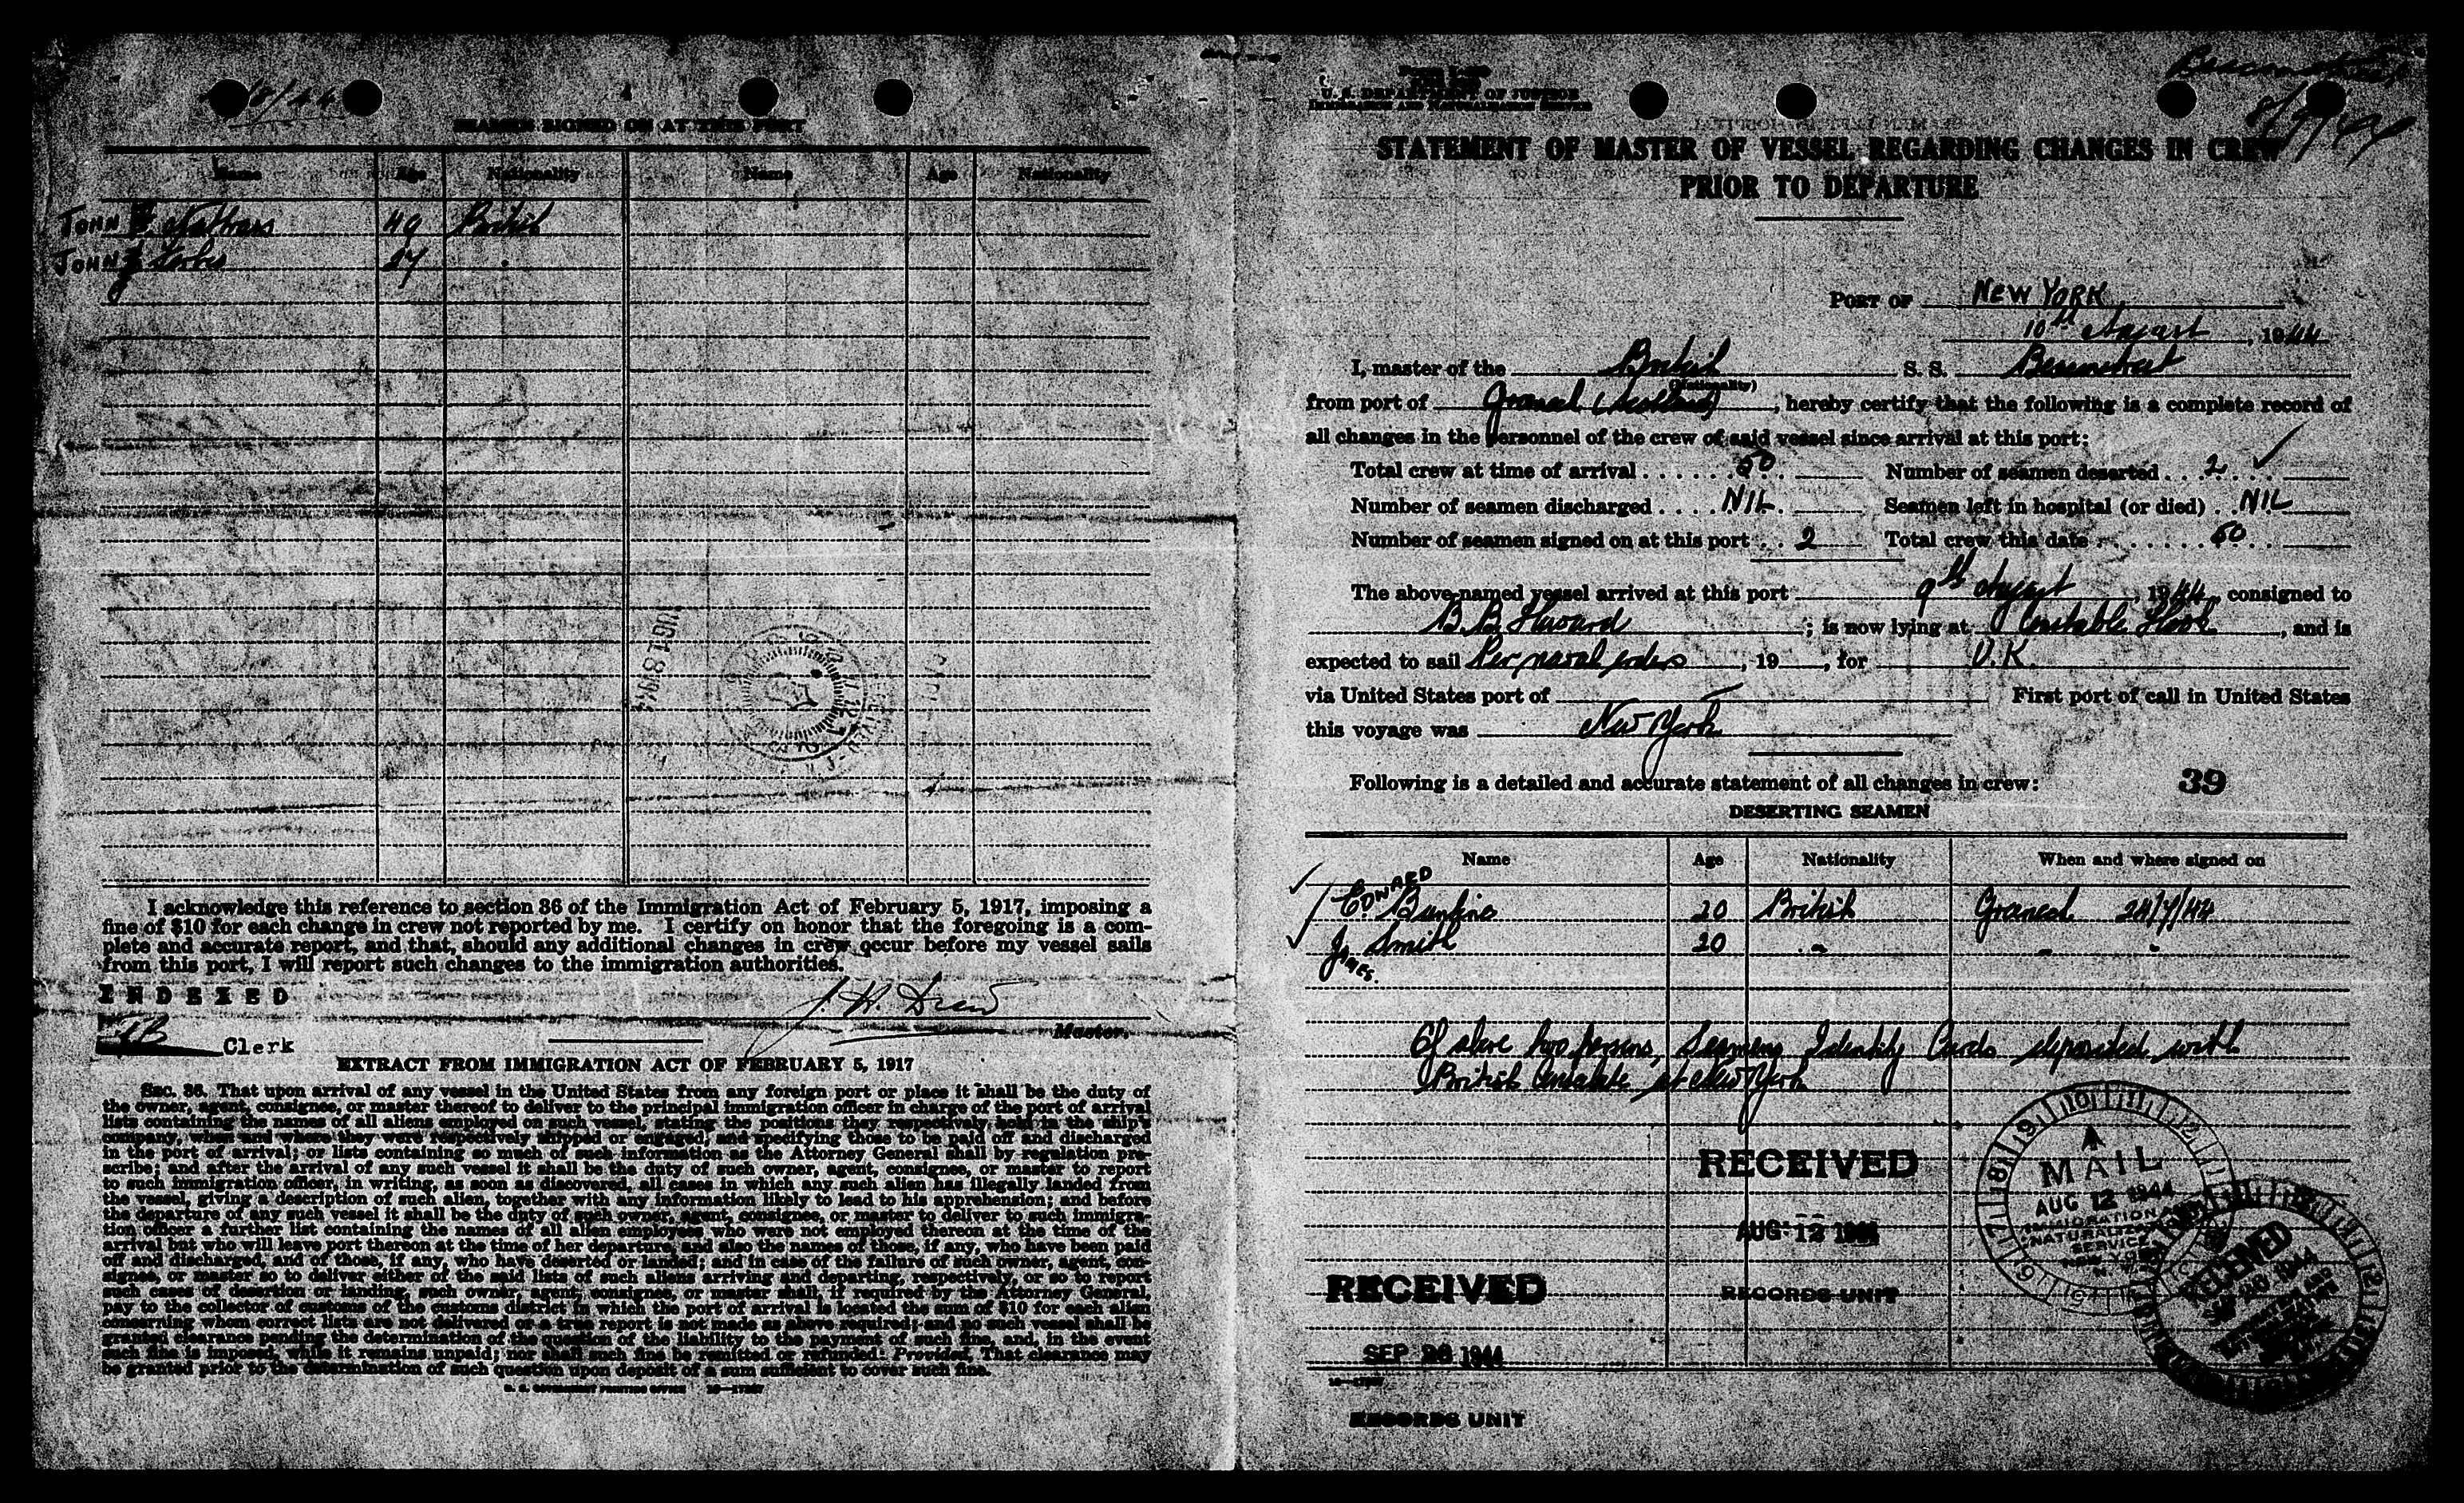 4
SEAMEN SIGNED ON AT THIS PORT
Name Age Nationality Name Age Nationality
JOHN 49 British
JOHN Forbes 27 "
I acknowledge this reference to section 36 of the Immigration Act of February 5, 1917, imposing a
fine of $10 for each change in crew not reported by me. I certify on honor that the foregoing is a com-
plete and accurate report, and that, should any additional changes in crew occur before my vessel sails
from this port, I will report such changes to the immigration authorities.
INDEXED
J. H. Drew
Master.
Clerk
EXTRACT FROM IMMIGRATION ACT OF FEBRUARY 5, 1917
SEC. 36. That upon arrival of any vessel in the United States from any foreign port or place it shall be the duty of
the owner, agent, consignee, or master thereof to deliver to the principal immigration officer in charge of the port of arrival
lists containing the names of all aliens employed on such vessel, stating the positions they respectively hold in the ship's
company, when and where they were respectively shipped or engaged, and specifying those to be paid off and discharged
in the port of arrival; or lists containing so much of such information as the Attorney General shall by regulation pre-
scribe; and after the arrival of any such vessel it shall be the duty of such owner, agent, consignee, or master to report
to such immigration officer, in writing, as soon as discovered, all cases in which any such alien has illegally landed from
the vessel, giving a description of such alien, together with any information likely to lead to his apprehension; and before
the departure of any such vessel it shall be the duty of such owner, agent, consignee, or master to deliver to such immigra-
tion officer a further list containing the names of all alien employees who were not employed thereon at the time of the
arrival but who will leave port thereon at the time of her departure, and also the names of those, if any, who have been paid
off and discharged, and of those, if any, who have deserted or landed; and in case of the failure of such owner, agent, con-
signee, or master so to deliver either of the said lists of such aliens arriving and departing, respectively, or so to report
such cases of desertion or landing, such owner, agent, consignee, or master shall, if required by the Attorney General,
pay to the collector of customs of the customs district in which the port of arrival is located the sum of $10 for each alien
concerning whom correct lists are not delivered or a true report is not made as above required; and no such vessel shall be
granted clearance pending the determination of the question of the liability to the payment of such fine, and, in the event
such fine is imposed, while it remains unpaid; nor shall such fine be remitted or refunded: Provided, That clearance may
be granted prior to the determination of such question upon deposit of a sum sufficient to cover such fine.
U. S. GOVERNMENT PRINTING OFFICE
U. S. DEPARTMENT OF JUSTICE
IMMIGRATION AND NATURALIZATION SERVICE
STATEMENT OF MASTER OF VESSEL REGARDING CHANGES IN CREW
PRIOR TO DEPARTURE
PORT OF NEW YORK
10th August, 1944
I, master of the British S. S.
(Nationality)
from port of (Scotland), hereby certify that the following is a complete record of
all changes in the personnel of the crew of said vessel since arrival at this port:
Total crew at time of arrival 50 Number of seamen deserted 2 ✓
Number of seamen discharged NIL Seamen left in hospital (or died) NIL
Number of seamen signed on at this port 2 Total crew this date 50
The above-named vessel arrived at this port 9th August, 1944, consigned to
B. B. Howard; is now lying at Constable Hook, and is
expected to sail Per naval orders, 19 , for U.K.
via United States port of First port of call in United States
this voyage was New York
Following is a detailed and accurate statement of all changes in crew: 39
DESERTING SEAMEN
Name Age Nationality When and where signed on
EDWARD 20 British 24/7/44
JAMES Smith 20 " " "
Of above two persons, Seamens Identity Cards deposited with
British Consulate at New York
RECEIVED
AUG 12 1944
RECORDS UNIT
MAIL
AUG 12 1944
IMMIGRATION &
NATURALIZATION
SERVICE
RECEIVED
SEP 20 1944
RECEIVED
SEP 20 1944
RECORDS UNIT